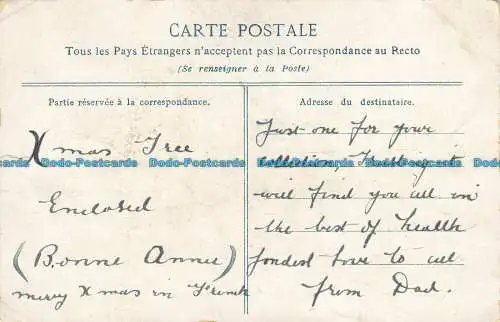 CARTE POSTALE
Tous les Pays Étrangers n'acceptent pas la Correspondance au Recto
(Se renseigner à la Poste)
Partie réservée à la correspondance.
Xmas Tree
Enclosed
(Bonne Annee)
merry Xmas in French
Adresse du destinataire.
Just one for your
collection, Trusting it
will find you all in
the best of health
fondest love to all
from Dad.
Dodo-Postcards Dodo-Postcards Dodo-Postcards Dodo-Postcards Dodo-Postcards